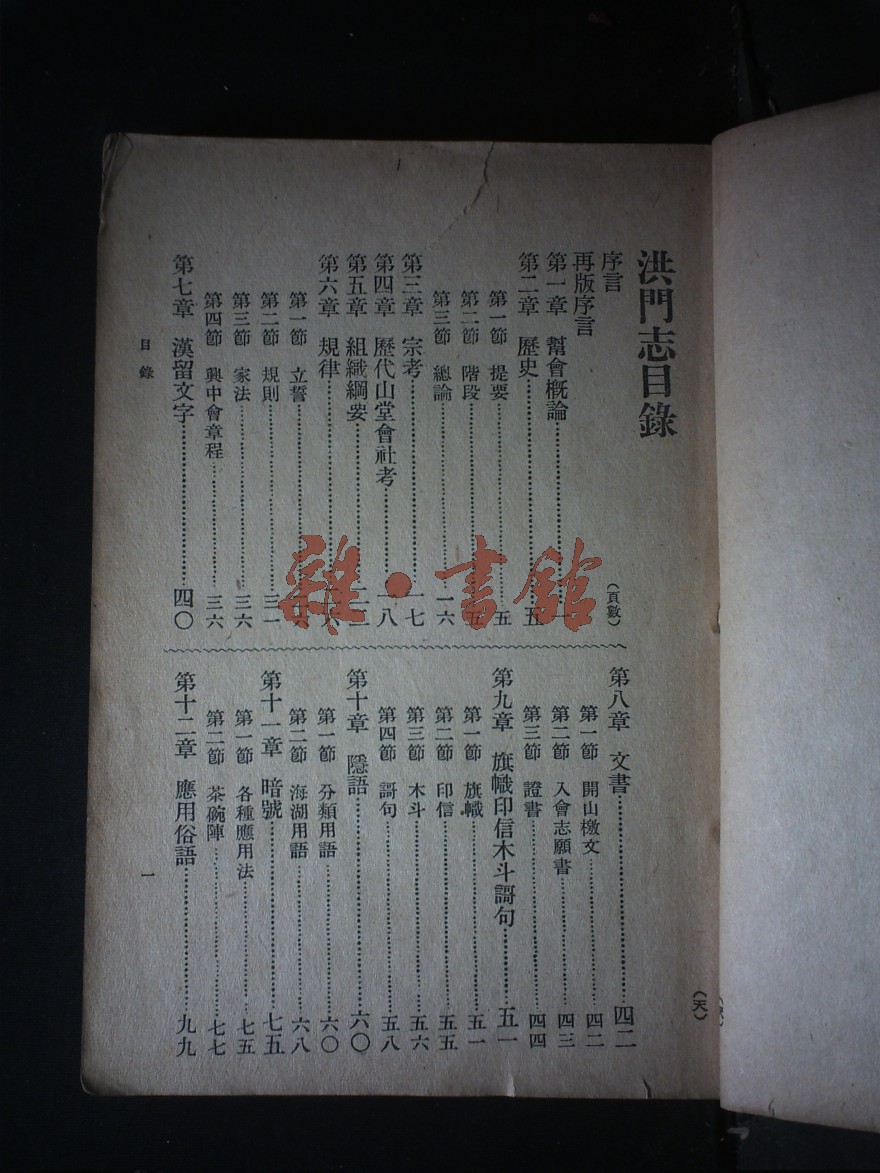 洪門志目錄
(頁數)
序言
再版序言
第一章 幫會概論……一
第二章 歷史……五
第一節 提要……五
第二節 階段……五
第三節 總論……一六
第三章 宗考……一七
第四章 歷代山堂會社考……一八
第五章 組織綱要……二二
第六章 規律……二六
第一節 立誓……二六
第二節 規則……三一
第三節 家法……三六
第四節 興中會章程……三六
第七章 漢留文字……四〇
第八章 文書……四二
第一節 開山檄文……四二
第二節 入會志願書……四三
第三節 證書……四四
第九章 旗幟印信木斗謌句……五一
第一節 旗幟……五一
第二節 印信……五五
第三節 木斗……五六
第四節 謌句……五八
第十章 隱語……六〇
第一節 分類用語……六〇
第二節 海湖用語……六八
第十一章 暗號……七五
第一節 各種應用法……七五
第二節 茶碗陣……七七
第十二章 應用俗語……九九
目錄
一
(天)
雜·書館